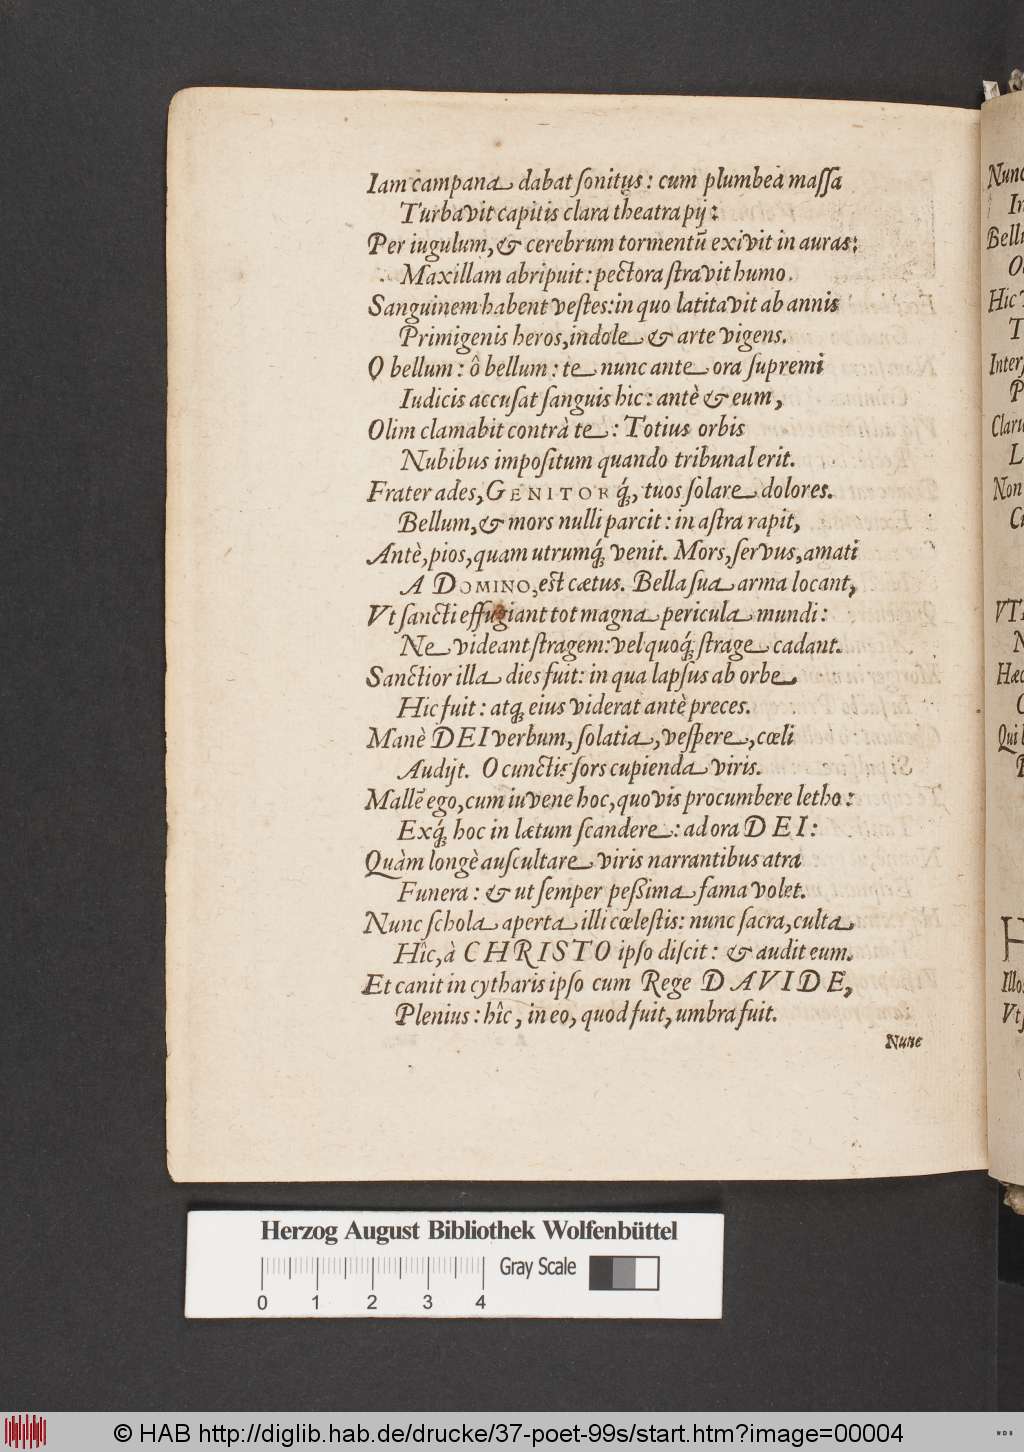 Iam campana dabat ſonitus: cum plumbea maſſa
Turbavit capitis clara theatra pij:
Per iugulum, & cerebrum tormentū exivit in auras:
Maxillam abripuit: pectora ſtravit humo.
Sanguinem habent veſtes: in quo latitavit ab annis
Primigenis heros, indole & arte vigens.
O bellum: ô bellum: te nunc ante ora ſupremi
Iudicis accuſat ſanguis hic: antè & eum,
Olim clamabit contrà te: Totius orbis
Nubibus impoſitum quando tribunal erit.
Frater ades, GENITORq́;, tuos ſolare dolores.
Bellum, & mors nulli parcit: in aſtra rapit,
Antè, pios, quam utrumq́; venit. Mors, ſervus, amati
A DOMINO, eſt cætus. Bella ſua arma locant,
Vt ſancti effugiant tot magna pericula mundi:
Ne videant ſtragem: vel quoq́; ſtrage cadant.
Sanctior illa dies fuit: in qua lapſus ab orbe
Hic fuit: atq; eius viderat antè preces.
Manè DEI verbum, ſolatia, veſpere, cœli
Audijt. O cunctis ſors cupienda viris.
Mallē ego, cum iuvene hoc, quovis procumbere letho:
Exq́; hoc in lætum ſcandere: ad ora DEI:
Quàm longè auſcultare viris narrantibus atra
Funera: & ut ſemper peßima fama volet.
Nunc ſchola aperta illi cœleſtis: nunc ſacra, culta
Hîc, à CHRISTO ipſo diſcit: & audit eum.
Et canit in cytharis ipſo cum Rege DAVIDE,
Plenius: hîc, in eo, quod fuit, umbra fuit.
Nunc
Nunc
In
Bellu
Hic
Inter
Claru
Non
VT
Hæc
Qui
Illos
Vt
Herzog August Bibliothek Wolfenbüttel
Gray Scale
0 1 2 3 4
© HAB http://diglib.hab.de/drucke/37-poet-99s/start.htm?image=00004